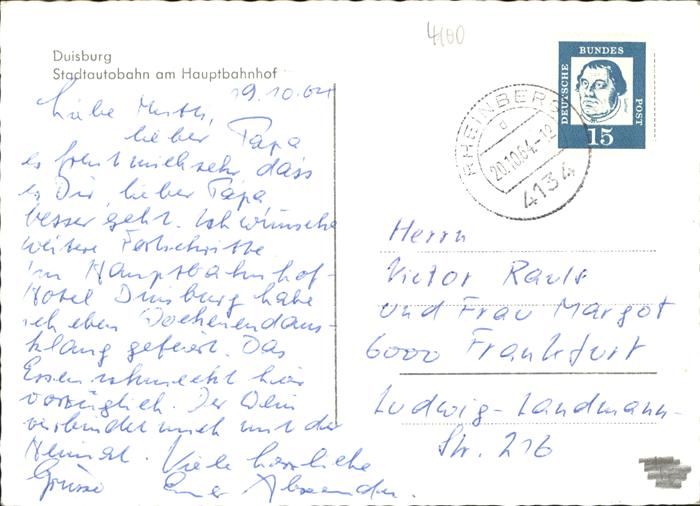 Duisburg
Stadtautobahn am Hauptbahnhof
4100
19.10.64
Liebe Mutti,
lieber Papa
es freut mich sehr dass
es Dir, lieber Papa
besser geht. Ich wünsche
weitere Fortschritte
im Hauptbahnhof-
Hotel Duisburg habe
ich eben Wochenendaus-
klang gefeiert. Das
Essen schmeckt hier
vorzüglich. Der Wein
verbindet mich mit der
Heimat. Viele herzliche
Grüsse Euer Alexander.
DEUTSCHE
BUNDES
POST
15
RHEINBERG
a
20.10.64-12
4134
Herrn
Victor Rauls
und Frau Margot
6000 Frankfurt
Ludwig-Landmann-
Str. 216